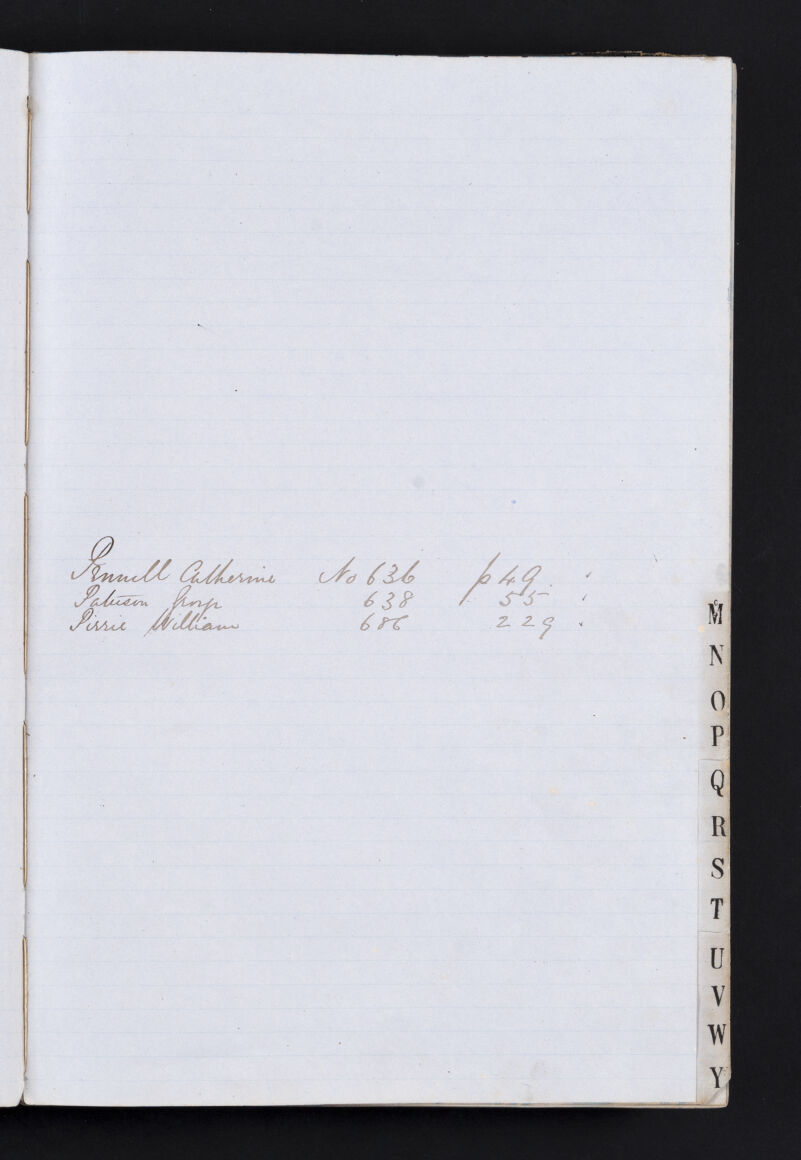 Pennell Catherine No 636 p 49
Paterson 638 55
Pirrie William 686 229
M
N
O
P
Q
R
S
T
U
V
W
Y